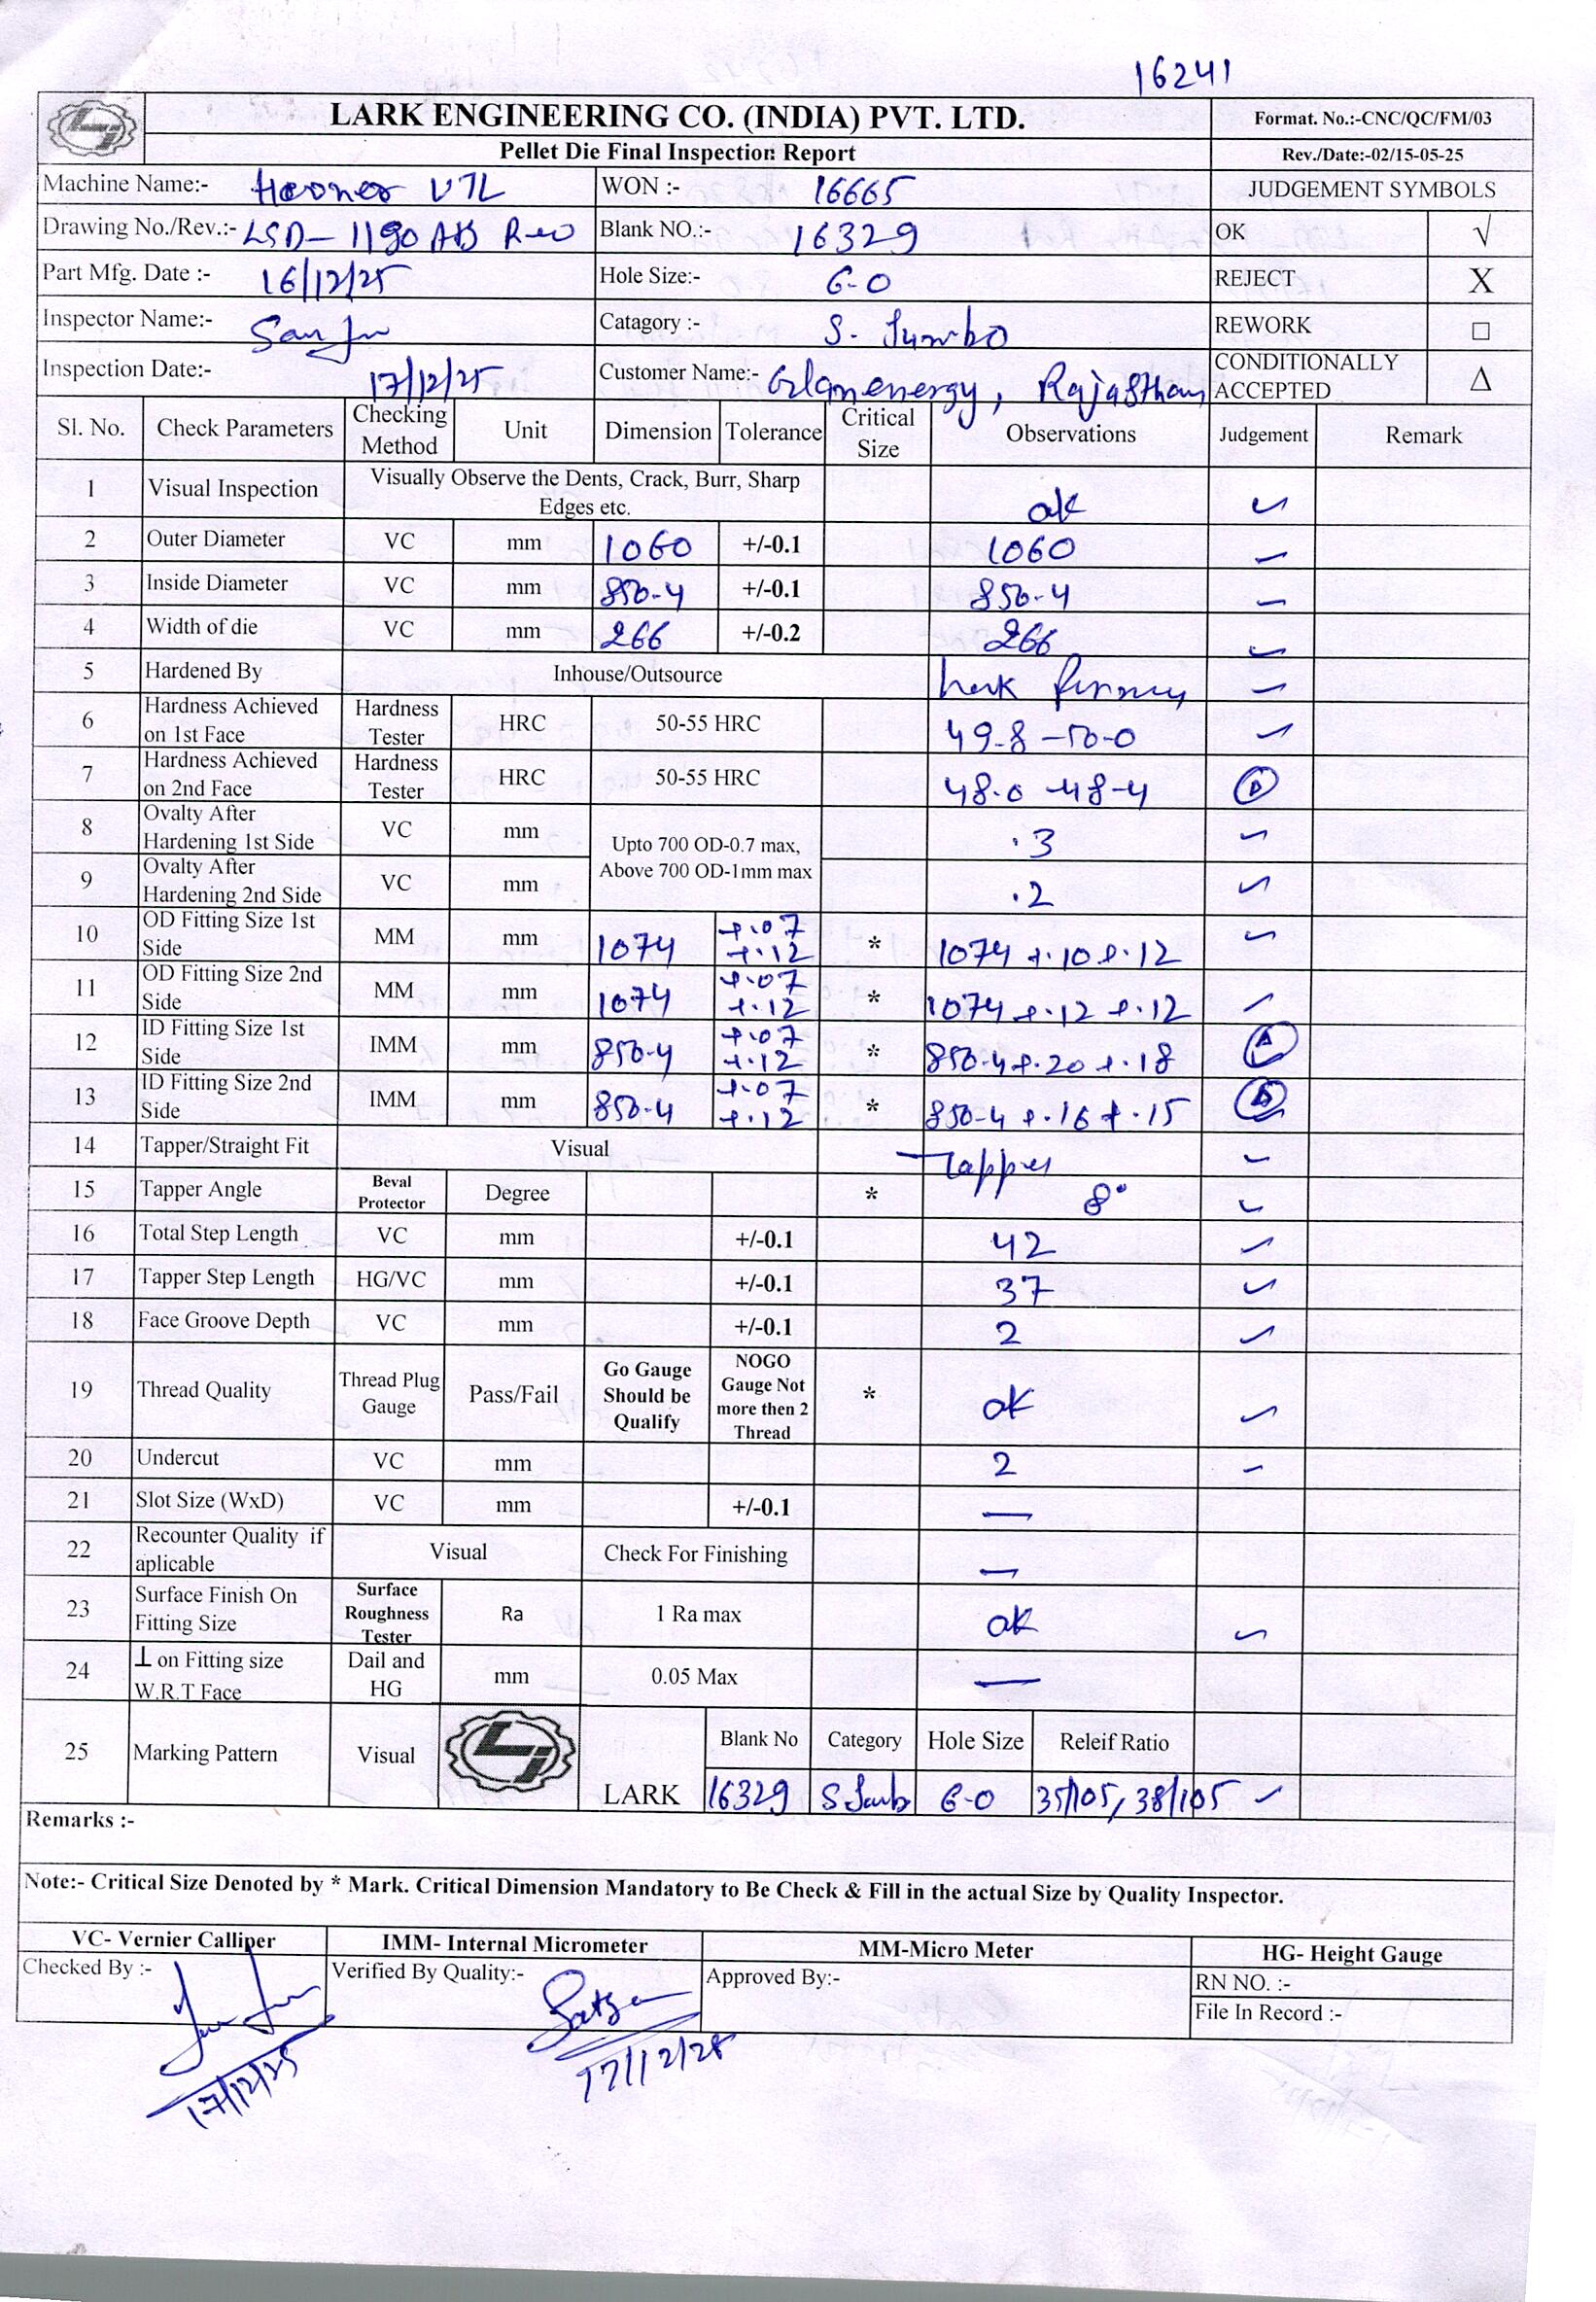 16241
LARK ENGINEERING CO. (INDIA) PVT. LTD.
Format. No.:-CNC/QC/FM/03
Pellet Die Final Inspection Report
Rev./Date:-02/15-05-25
Machine Name:- VTL WON :- 16665 JUDGEMENT SYMBOLS
Drawing No./Rev.:- LSD-1190 Blank NO.:- 16329 OK √
Part Mfg. Date :- 16/12/25 Hole Size:- 6-0 REJECT X
Inspector Name:- Catagory :- S. Jumbo REWORK □
Inspection Date:- 17/12/25 Customer Name:- Rajasthan CONDITIONALLY ACCEPTED Δ
Sl. No. Check Parameters Checking Method Unit Dimension Tolerance Critical Size Observations Judgement Remark
1 Visual Inspection Visually Observe the Dents, Crack, Burr, Sharp Edges etc. ok ✓
2 Outer Diameter VC mm 1060 +/-0.1 1060
3 Inside Diameter VC mm 850-4 +/-0.1 850-4
4 Width of die VC mm 266 +/-0.2 266
5 Hardened By Inhouse/Outsource
6 Hardness Achieved on 1st Face Hardness Tester HRC 50-55 HRC 49-8 -50-0
7 Hardness Achieved on 2nd Face Hardness Tester HRC 50-55 HRC 48-0 -48-4
8 Ovalty After Hardening 1st Side VC mm Upto 700 OD-0.7 max, Above 700 OD-1mm max .3
9 Ovalty After Hardening 2nd Side VC mm .2
10 OD Fitting Size 1st Side MM mm 1074 +.07 +.12 * 1074 +.10 +.12
11 OD Fitting Size 2nd Side MM mm 1074 +.07 +.12 * 1074 +.12 +.12
12 ID Fitting Size 1st Side IMM mm 850-4 +.07 +.12 * 850-4 +.20 +.18
13 ID Fitting Size 2nd Side IMM mm 850-4 +.07 +.12 * 850-4 +.16 +.15
14 Tapper/Straight Fit Visual Tapper
15 Tapper Angle Beval Protector Degree * 8°
16 Total Step Length VC mm +/-0.1 42
17 Tapper Step Length HG/VC mm +/-0.1 37
18 Face Groove Depth VC mm +/-0.1 2
19 Thread Quality Thread Plug Gauge Pass/Fail Go Gauge Should be Qualify NOGO Gauge Not more then 2 Thread * ok
20 Undercut VC mm 2
21 Slot Size (WxD) VC mm +/-0.1 —
22 Recounter Quality if aplicable Visual Check For Finishing —
23 Surface Finish On Fitting Size Surface Roughness Tester Ra 1 Ra max ok
24 ⊥ on Fitting size W.R.T Face Dail and HG mm 0.05 Max —
25 Marking Pattern Visual LARK Blank No Category Hole Size Releif Ratio
16329 6-0 35/105, 38/105
Remarks :-
Note:- Critical Size Denoted by * Mark. Critical Dimension Mandatory to Be Check & Fill in the actual Size by Quality Inspector.
VC- Vernier Calliper IMM- Internal Micrometer MM-Micro Meter HG- Height Gauge
Checked By :- Verified By Quality:- Approved By:- RN NO. :-
File In Record :-
17/12/25 17/12/25